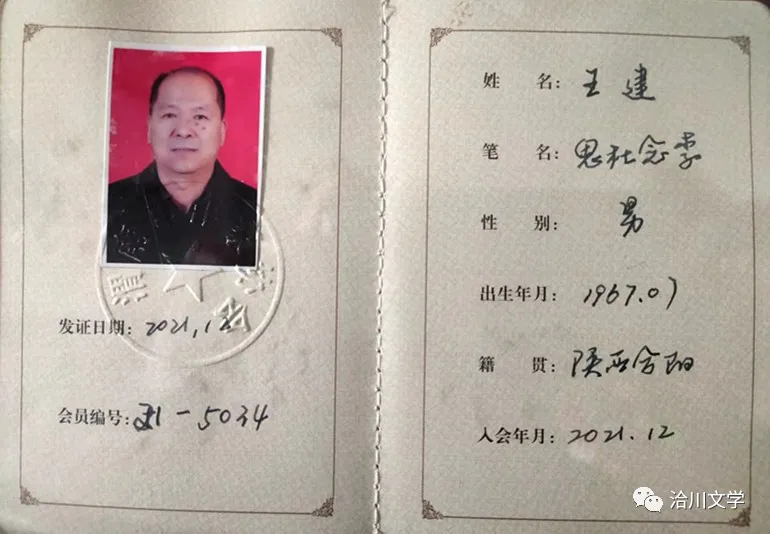 发证日期：2021,12
会员编号：21-5034
姓 名：王建
笔 名：思杜念李
性 别：男
出生年月：1967.07
籍 贯：陕西合阳
入会年月：2021.12
洽川文学